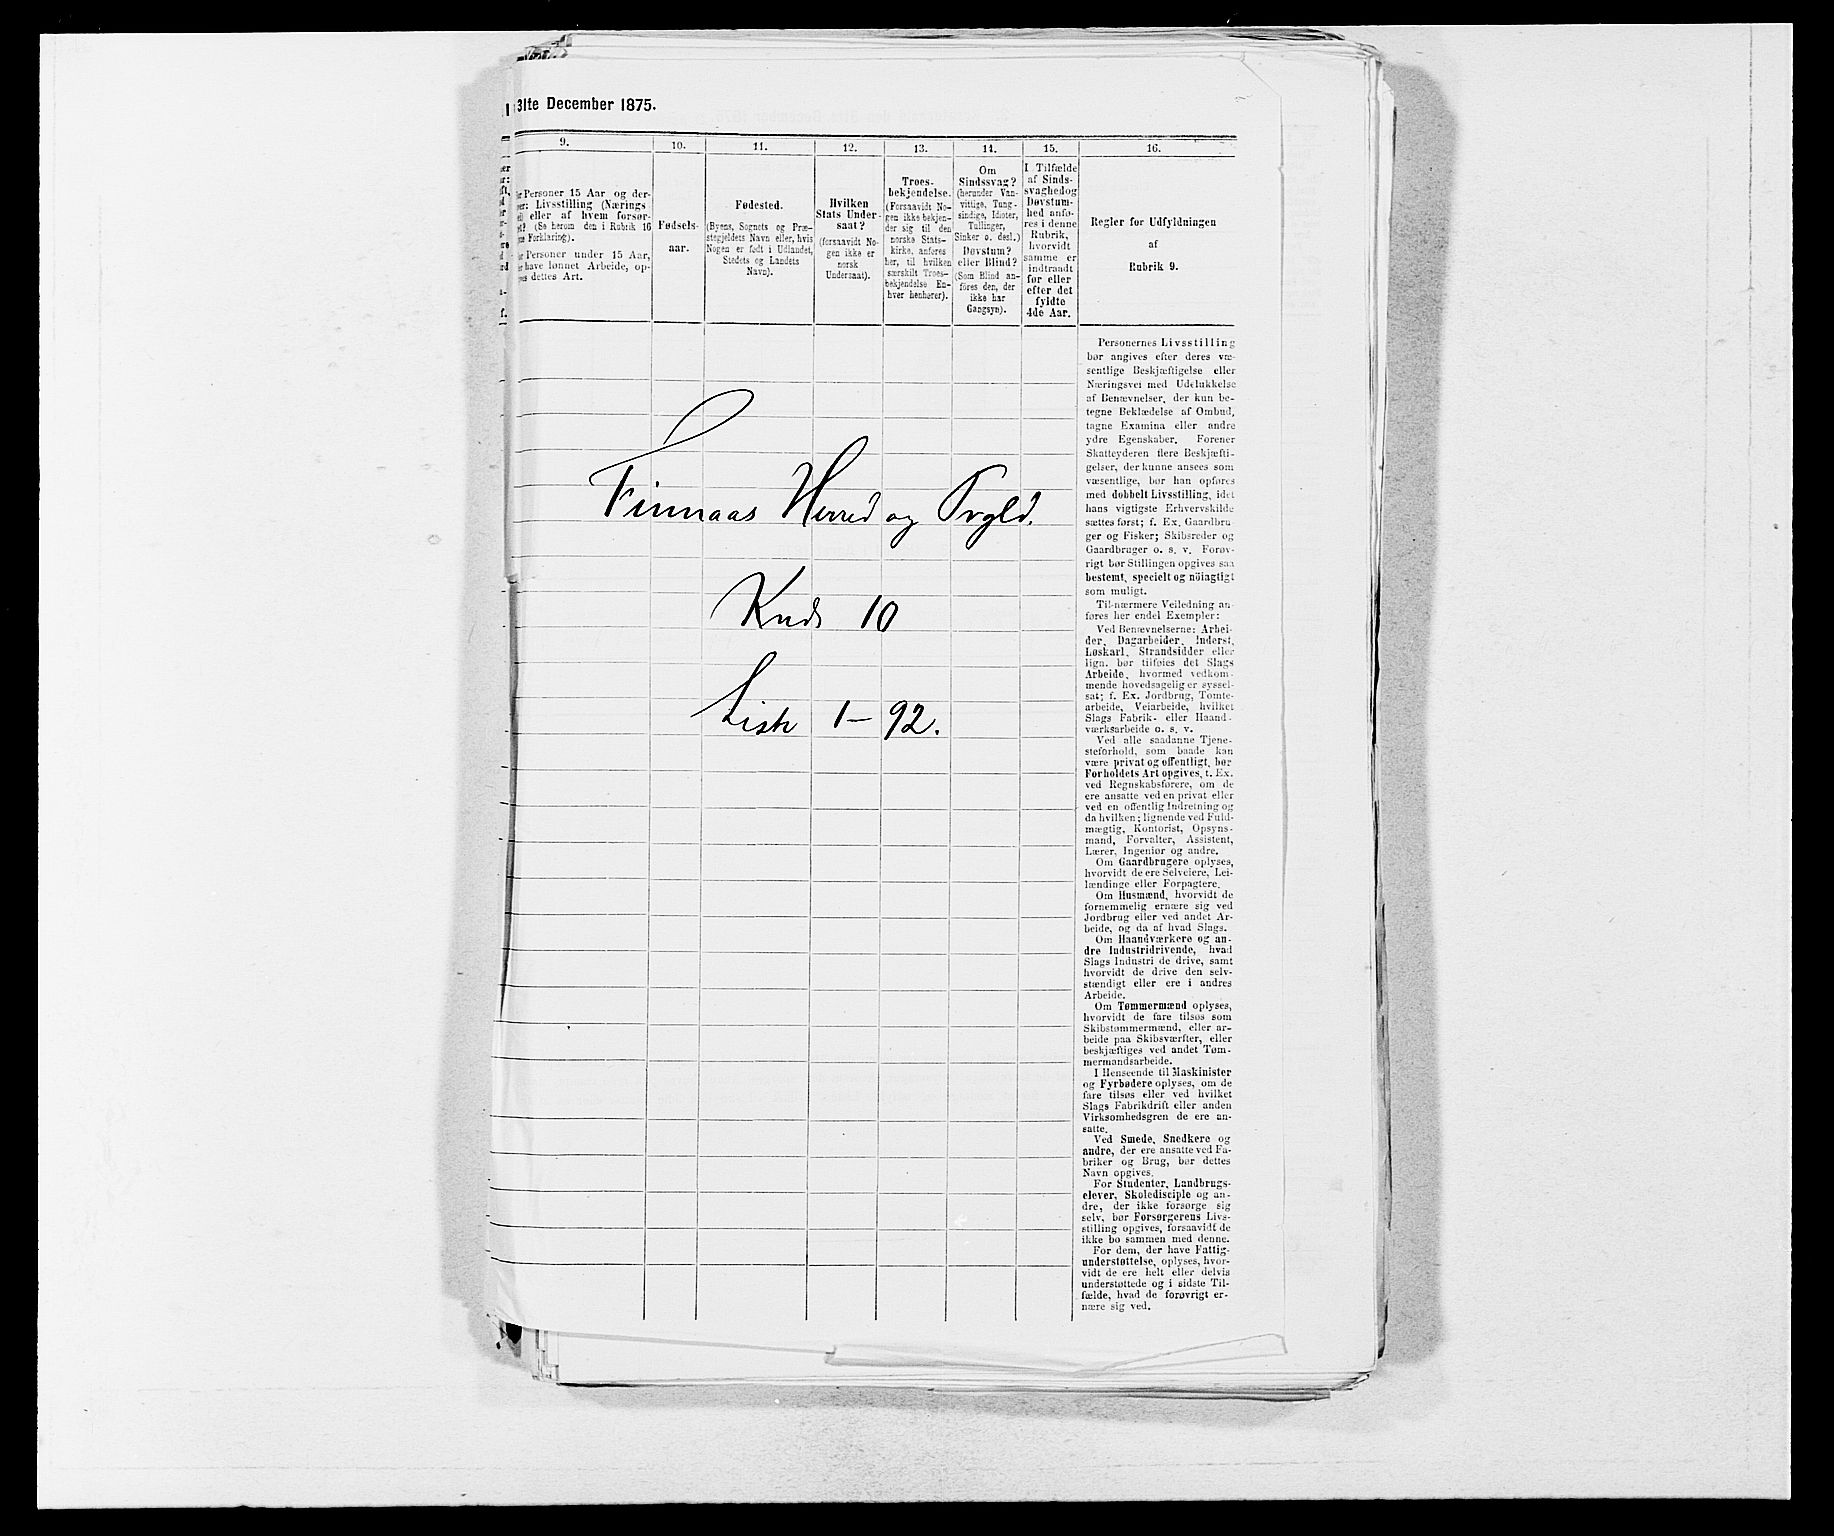 31te December 1875.
9.
10.
11.
12.
13.
14.
15.
16.
Personer 15 Aar og der-
Livsstilling (Nærings
eller af hvem forsør-
(Se herom den i Rubrik 16
Forklaring).
Personer under 15 Aar,
have lønnet Arbeide, op-
dettes Art.
Fødsels-
aar.
Fødested.
(Byens, Sognets og Præ-
stegjeldets Navn eller, hvis
Nogen er født i Udlandet,
Stedets og Landets
Navn).
Hvilken
Stats Under-
saat?
(forsaavidt No-
gen ikke er
norsk
Undersaat).
Troes-
bekjendelse.
(Forsaavidt No-
gen ikke bekjen-
der sig til den
norske Stats-
kirke, anføres
her, til hvilken
særskilt Troes-
bekjendelse En-
hver henhører).
Om
Sindssvag?
(herunder Van-
vittige, Tung-
sindige, Idioter,
Tullinger,
Sinker o. desl.)
Døvstum?
eller Blind?
(Som Blind an-
føres den, der
ikke har
Gangsyn).
I Tilfælde
af Sinds-
svaghed og
Døvstum-
hed anfø-
res i denne
Rubrik,
hvorvidt
samme er
indtraadt
før eller
efter det
fyldte
4de Aar.
Regler for Udfyldningen
af
Rubrik 9.
Personernes Livsstilling
bør angives efter deres væ-
sentlige Beskjæftigelse eller
Næringsvei med Udelukkelse
af Benævnelser, der kun be-
tegne Beklædelse af Ombud,
tagne Examina eller andre
ydre Egenskaber. Forener
Skatteyderen flere Beskjæfti-
gelser, der kunne ansees som
væsentlige, bør han opføres
med dobbelt Livsstilling, idet
hans vigtigste Erhvervskilde
sættes først; f. Ex. Gaardbru
ger og Fisker; Skibsreder og
Gaardbruger o. s. v. Forøv-
rigt bør Stillingen opgives saa
bestemt, specielt og nöiagtigt
som muligt.
Til nærmere Veiledning an-
føres her endel Exempler:
Ved Benævnelserne: Arbei-
der, Dagarbeider, Inderst,
Løskarl, Strandsidder eller
lign. bør tilføies det Slags
Arbeide, hvormed vedkom-
mende hovedsagelig er syssel-
sat; f. Ex. Jordbrug, Tomte-
arbeide, Veiarbeide, hvilket
Slags Fabrik- eller Haand-
værksarbeide o. s. v.
Ved alle saadanne Tjene-
steforhold, som baade kan
være privat og offentligt, bør
Forholdets Art opgives, t. Ex.
ved Regnskabsførere, om de
ere ansatte ved en privat eller
ved en offentlig Indretning og
da hvilken; lignende ved Fuld-
mægtig, Kontorist, Opsyns-
mand, Forvalter, Assistent,
Lærer, Ingeniør og andre.
Om Gaardbrugere oplyses,
hvorvidt de ere Selveiere, Lei-
lændinge eller Forpagtere.
Om Husmænd, hvorvidt de
fornemmelig ernære sig ved
Jordbrug eller ved andet Ar-
beide, og da af hvad Slags.
Om Haandværkere og an-
dre Industridrivende, hvad
Slags Industri de drive, samt
hvorvidt de drive den selv-
stændigt eller ere i andres
Arbeide.
Om Tømmermænd oplyses,
hvorvidt de fare tilsøs som
Skibstømmermænd, eller ar-
beide paa Skibsværfter, eller
beskjæftiges ved andet Tøm-
mermandsarbeide.
I Henseende til Maskinister
og Fyrbødere oplyses, om de
fare tilsøs eller ved hvilket
Slags Fabrikdrift eller anden
Virksomhedsgren de ere an-
satte.
Ved Smede, Snedkere og
andre, der ere ansatte ved Fa-
briker og Brug, bør dettes
Navn opgives.
For Studenter, Landbrugs-
elever, Skoledisciple og an-
dre, der ikke forsørge sig
selv, bør Forsørgerens Livs-
stilling opgives, forsaavidt de
ikke bo sammen med denne.
For dem, der have Fattig-
understøttelse, oplyses, hvor-
vidt de ere helt eller delvis
understøttede og i sidste Til-
fælde, hvad de forøvrigt er-
nære sig ved.
Finnaas Herred og Prgld.
Kreds 10
Liste 1–92.